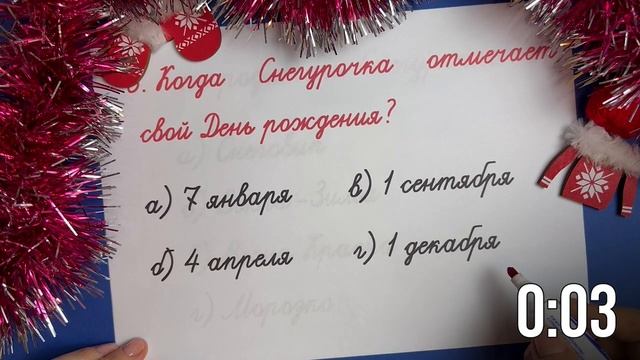 6. Когда Снегурочка отмечает
свой День рождения?
а) 7 января
в) 1 сентября
б) 4 апреля
г) 1 декабря
0:03